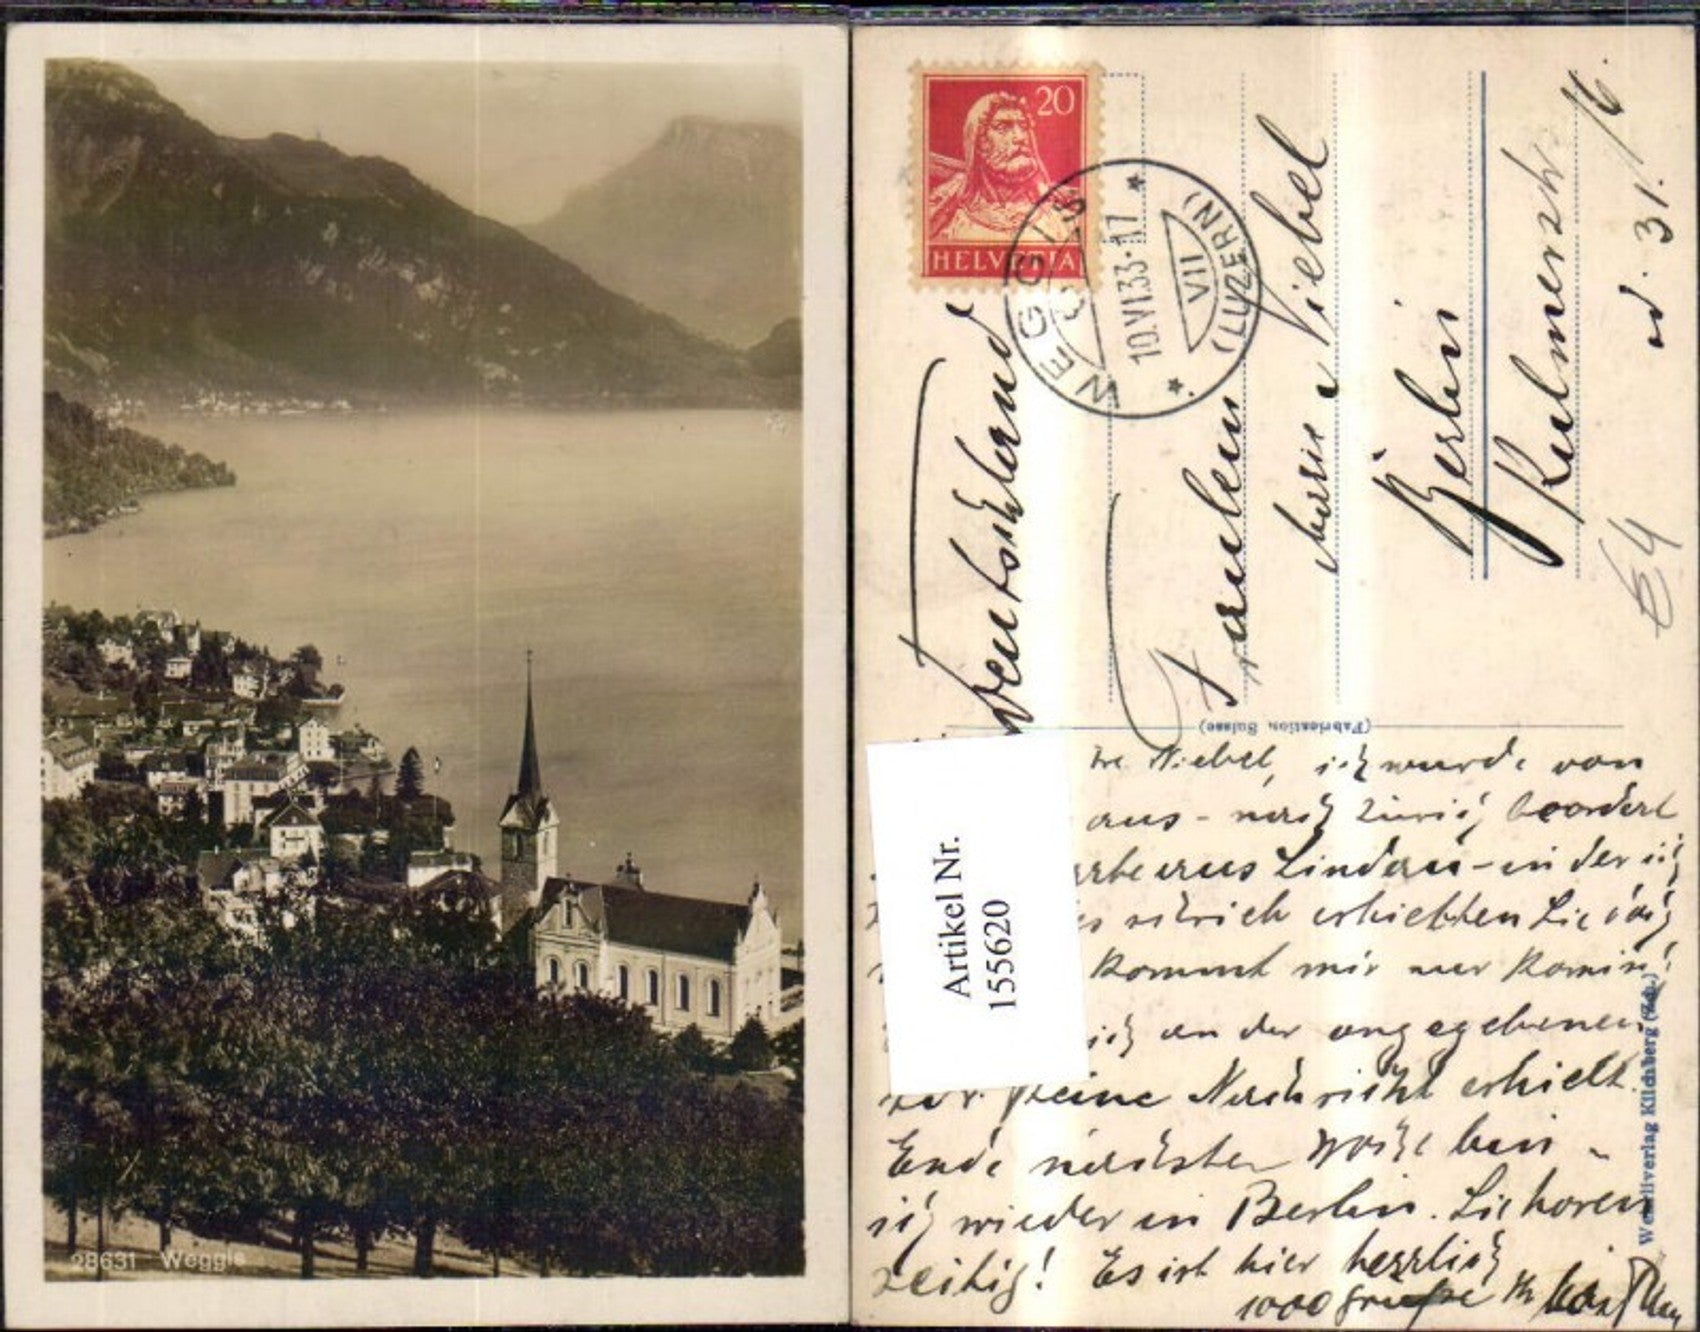 28631 Weggis
20
HELVETIA
WEGGIS
10.VI.33-17
VII
(LUZERN)
Deutschland
Fräulein
Niebel
Berlin
Kulmerstr.
31.
€4
(Fabrication Suisse)
Artikel Nr.
155620
Niebel, ich wurde von
aus - nach Zürich beordert
aus Lindau - in der ich
erhielten Sie
kommt mir vor
ich an der angegebenen
keine Nachricht erhielt.
Ende nächster Woche bin
ich wieder in Berlin. Sie hören
zeitig! Es ist hier herrlich
1000 Grüße Ihr
Wehrliverlag Kilchberg (Zch.)